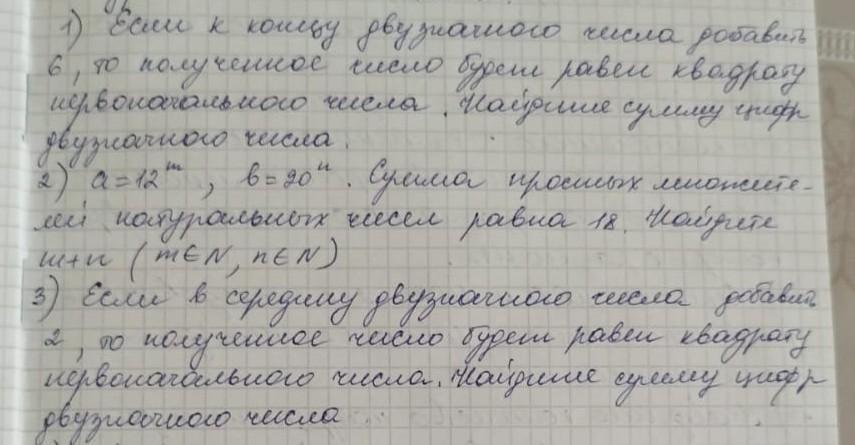 1) Если к концу двузначного числа добавить
6, то полученное число будет равен квадрату
первоначального числа. Найдите сумму цифр
двузначного числа.
2) a=12^m, b=20^n. Сумма простых множите-
лей натуральных чисел равна 18. Найдите
m+n (m∈N, n∈N)
3) Если в середину двузначного числа добавить
2, то полученное число будет равен квадрату
первоначального числа. Найдите сумму цифр
двузначного числа